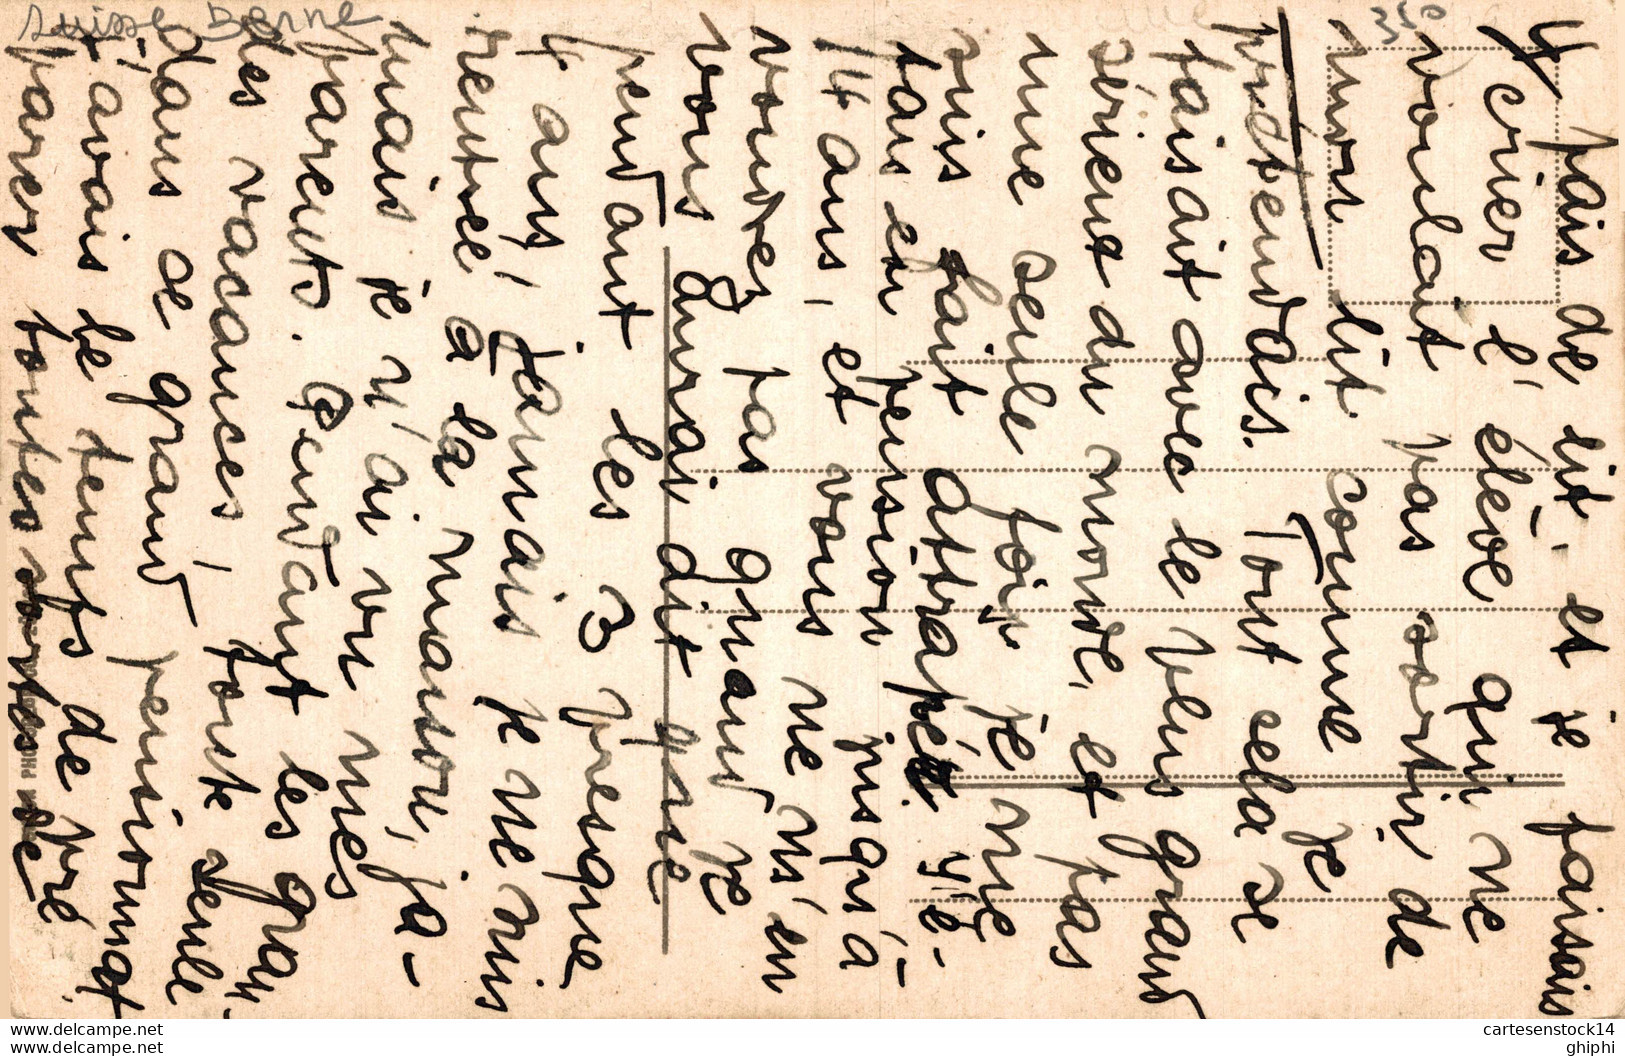 suisse Berne
350
pais de lit. et je faisais
crier l'élève qui ne
voulait pas sortir de
mon lit comme je
prétendais. Tout cela se
faisait avec le plus grand
sérieux du monde, et pas
une seule fois je me
suis fait attraper. J'é-
tais en pension jusqu'à
14 ans, et vous ne m'en
voudrez pas quand je
vous aurai dit que
pendant les 3 presque
4 ans, jamais je ne suis
rentrée à la maison, ja-
mais je n'ai vu mes
parents. Pendant les gran-
des vacances, toute seule
dans ce grand pensionnat
j'avais le temps de pré
parer toutes sortes de
www.delcampe.net
www.delcampe.net
cartesenstock14
ghiphi